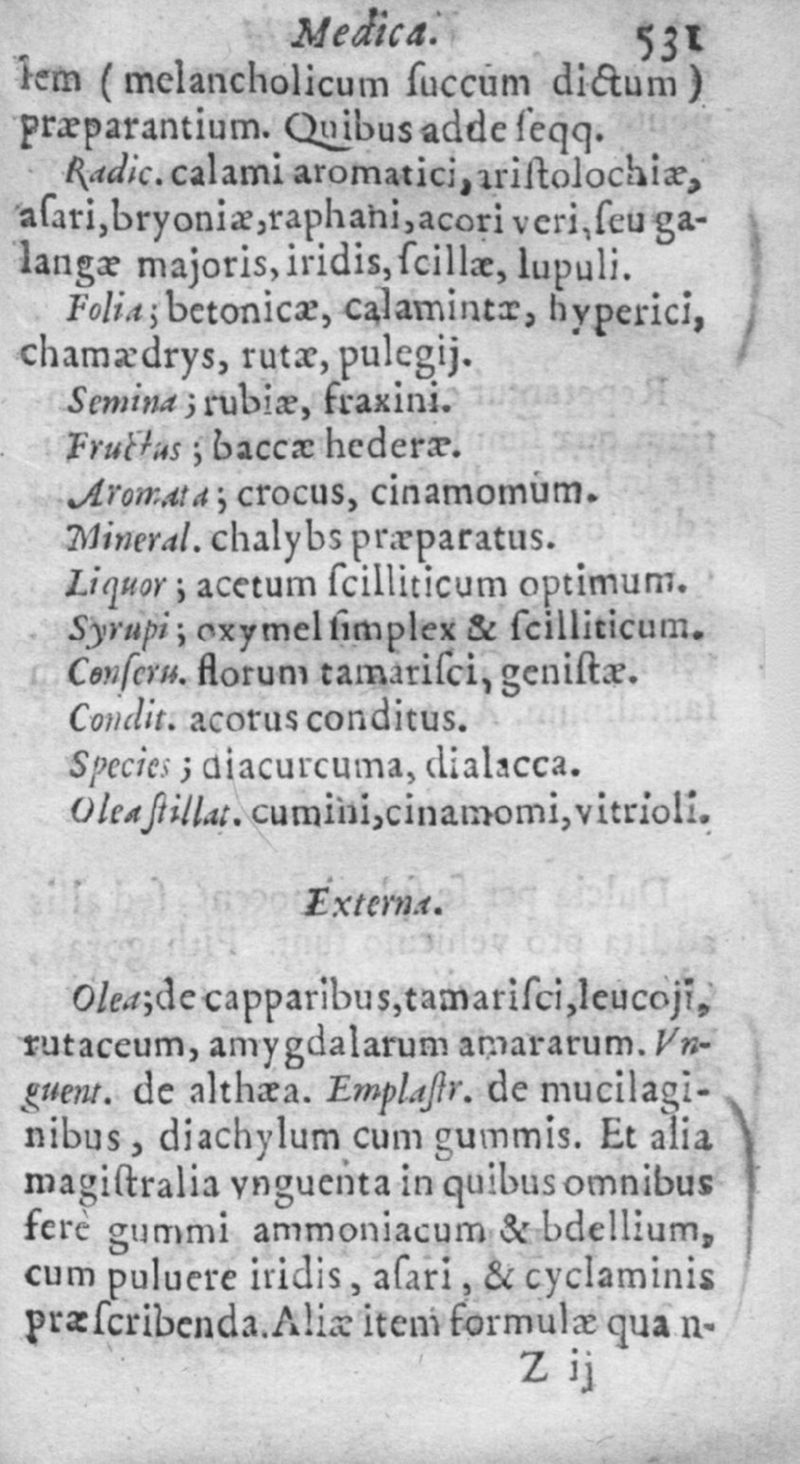 Medica. 531
lem ( melancholicum ſuccum dictum )
præparantium. Quibus adde ſeqq.
Radic. calami aromatici, ariſtolochiæ,
aſari, bryoniæ, raphani, acori veri, ſeu ga-
langæ majoris, iridis, ſcillæ, lupuli.
Folia; betonicæ, calamintæ, hyperici,
chamædrys, rutæ, pulegij.
Semina; rubiæ, fraxini.
Fructus; baccæ hederæ.
Aromata; crocus, cinamomum.
Mineral. chalybs præparatus.
Liquor; acetum ſcilliticum optimum.
Syrupi; oxymel ſimplex & ſcilliticum.
Conſeru. florum tamariſci, geniſtæ.
Condit. acorus conditus.
Species; diacurcuma, dialacca.
Olea ſtillat. cumini, cinamomi, vitrioli.
Externa.
Olea; de capparibus, tamariſci, leucoji,
rutaceum, amygdalarum amararum. Vn-
guent. de althæa. Emplaſtr. de mucilagi-
nibus, diachylum cum gummis. Et alia
magiſtralia vnguenta in quibus omnibus
ferè gummi ammoniacum & bdellium,
cum puluere iridis, aſari, & cyclaminis
præſcribenda. Aliæ item formulæ qua n-
Z ij